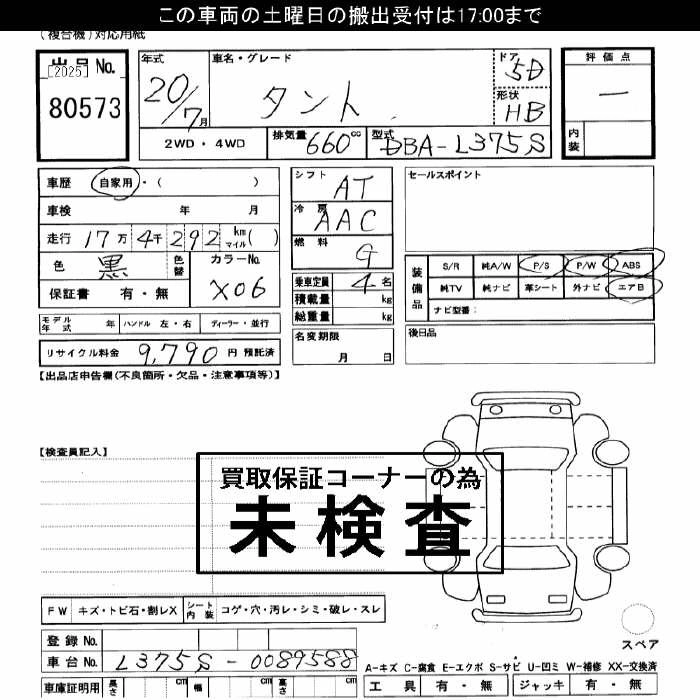 この車両の土曜日の搬出受付は17:00まで
(複合機)対応用紙
出品No.
[2025]
80573
年式
20/7月
車名・グレード
タント
ドア
5D
形状
HB
評価点
一
内装
2WD・4WD
排気量 660cc
型式 DBA-L375S
車歴 自家用・( )
車検 年 月
走行 17万4千292 km マイル( )
色 黒 色替
カラーNo. X06
保証書 有・無
シフト AT
冷房 AAC
燃料 G
乗車定員 4名
積載量 kg
総重量 kg
セールスポイント
装備品
S/R 純A/W P/S P/W ABS
純TV 純ナビ 革シート 外ナビ エアB
ナビ型番:
モデル年式 年 ハンドル 左・右 ディーラー・並行
名変期限
月 日
後日品
リサイクル料金 9,790 円 預託済
【出品店申告欄(不良箇所・欠品・注意事項等)】
【検査員記入】
買取保証コーナーの為
未検査
FW キズ・トビ石・割レX シート内装 コゲ・穴・汚レ・シミ・破レ・スレ
スペア
登録No.
車台No. L375S-0089588
A-キズ C-腐食 E-エクボ S-サビ U-凹ミ W-補修 XX-交換済
車庫証明用 長さ cm 幅 cm 高さ cm
工具 有・無 ジャッキ 有・無